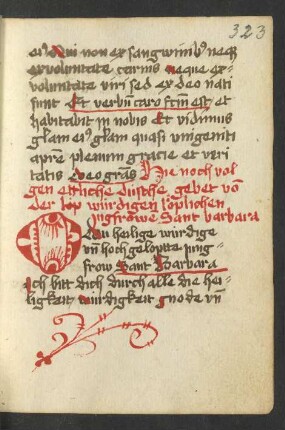 323
eiꝰ Qui non ex sangwinibꝰ neqꝫ
ex voluntate carnis neque ex-
voluntate viri sed ex deo nati
sunt Et verbū caro fctm̄ est et
habitabit in nobis Et vidimus
gl̄am eiꝰ gl̄am quasi unigeniti
a pr̄e plenum gracie et veri
tatis Deo grās Hie noch vol
gen ettliche düsche gebet vō
der lop würdigen löplichen
Jūgfrowe Sant barbara
O Du heilige würdige
vn̄ hoch gelöptte Jung
frow Sant Barbara
Ich bitt dich durch alle die hei-
ligkeit würdigkeit gnode vn̄